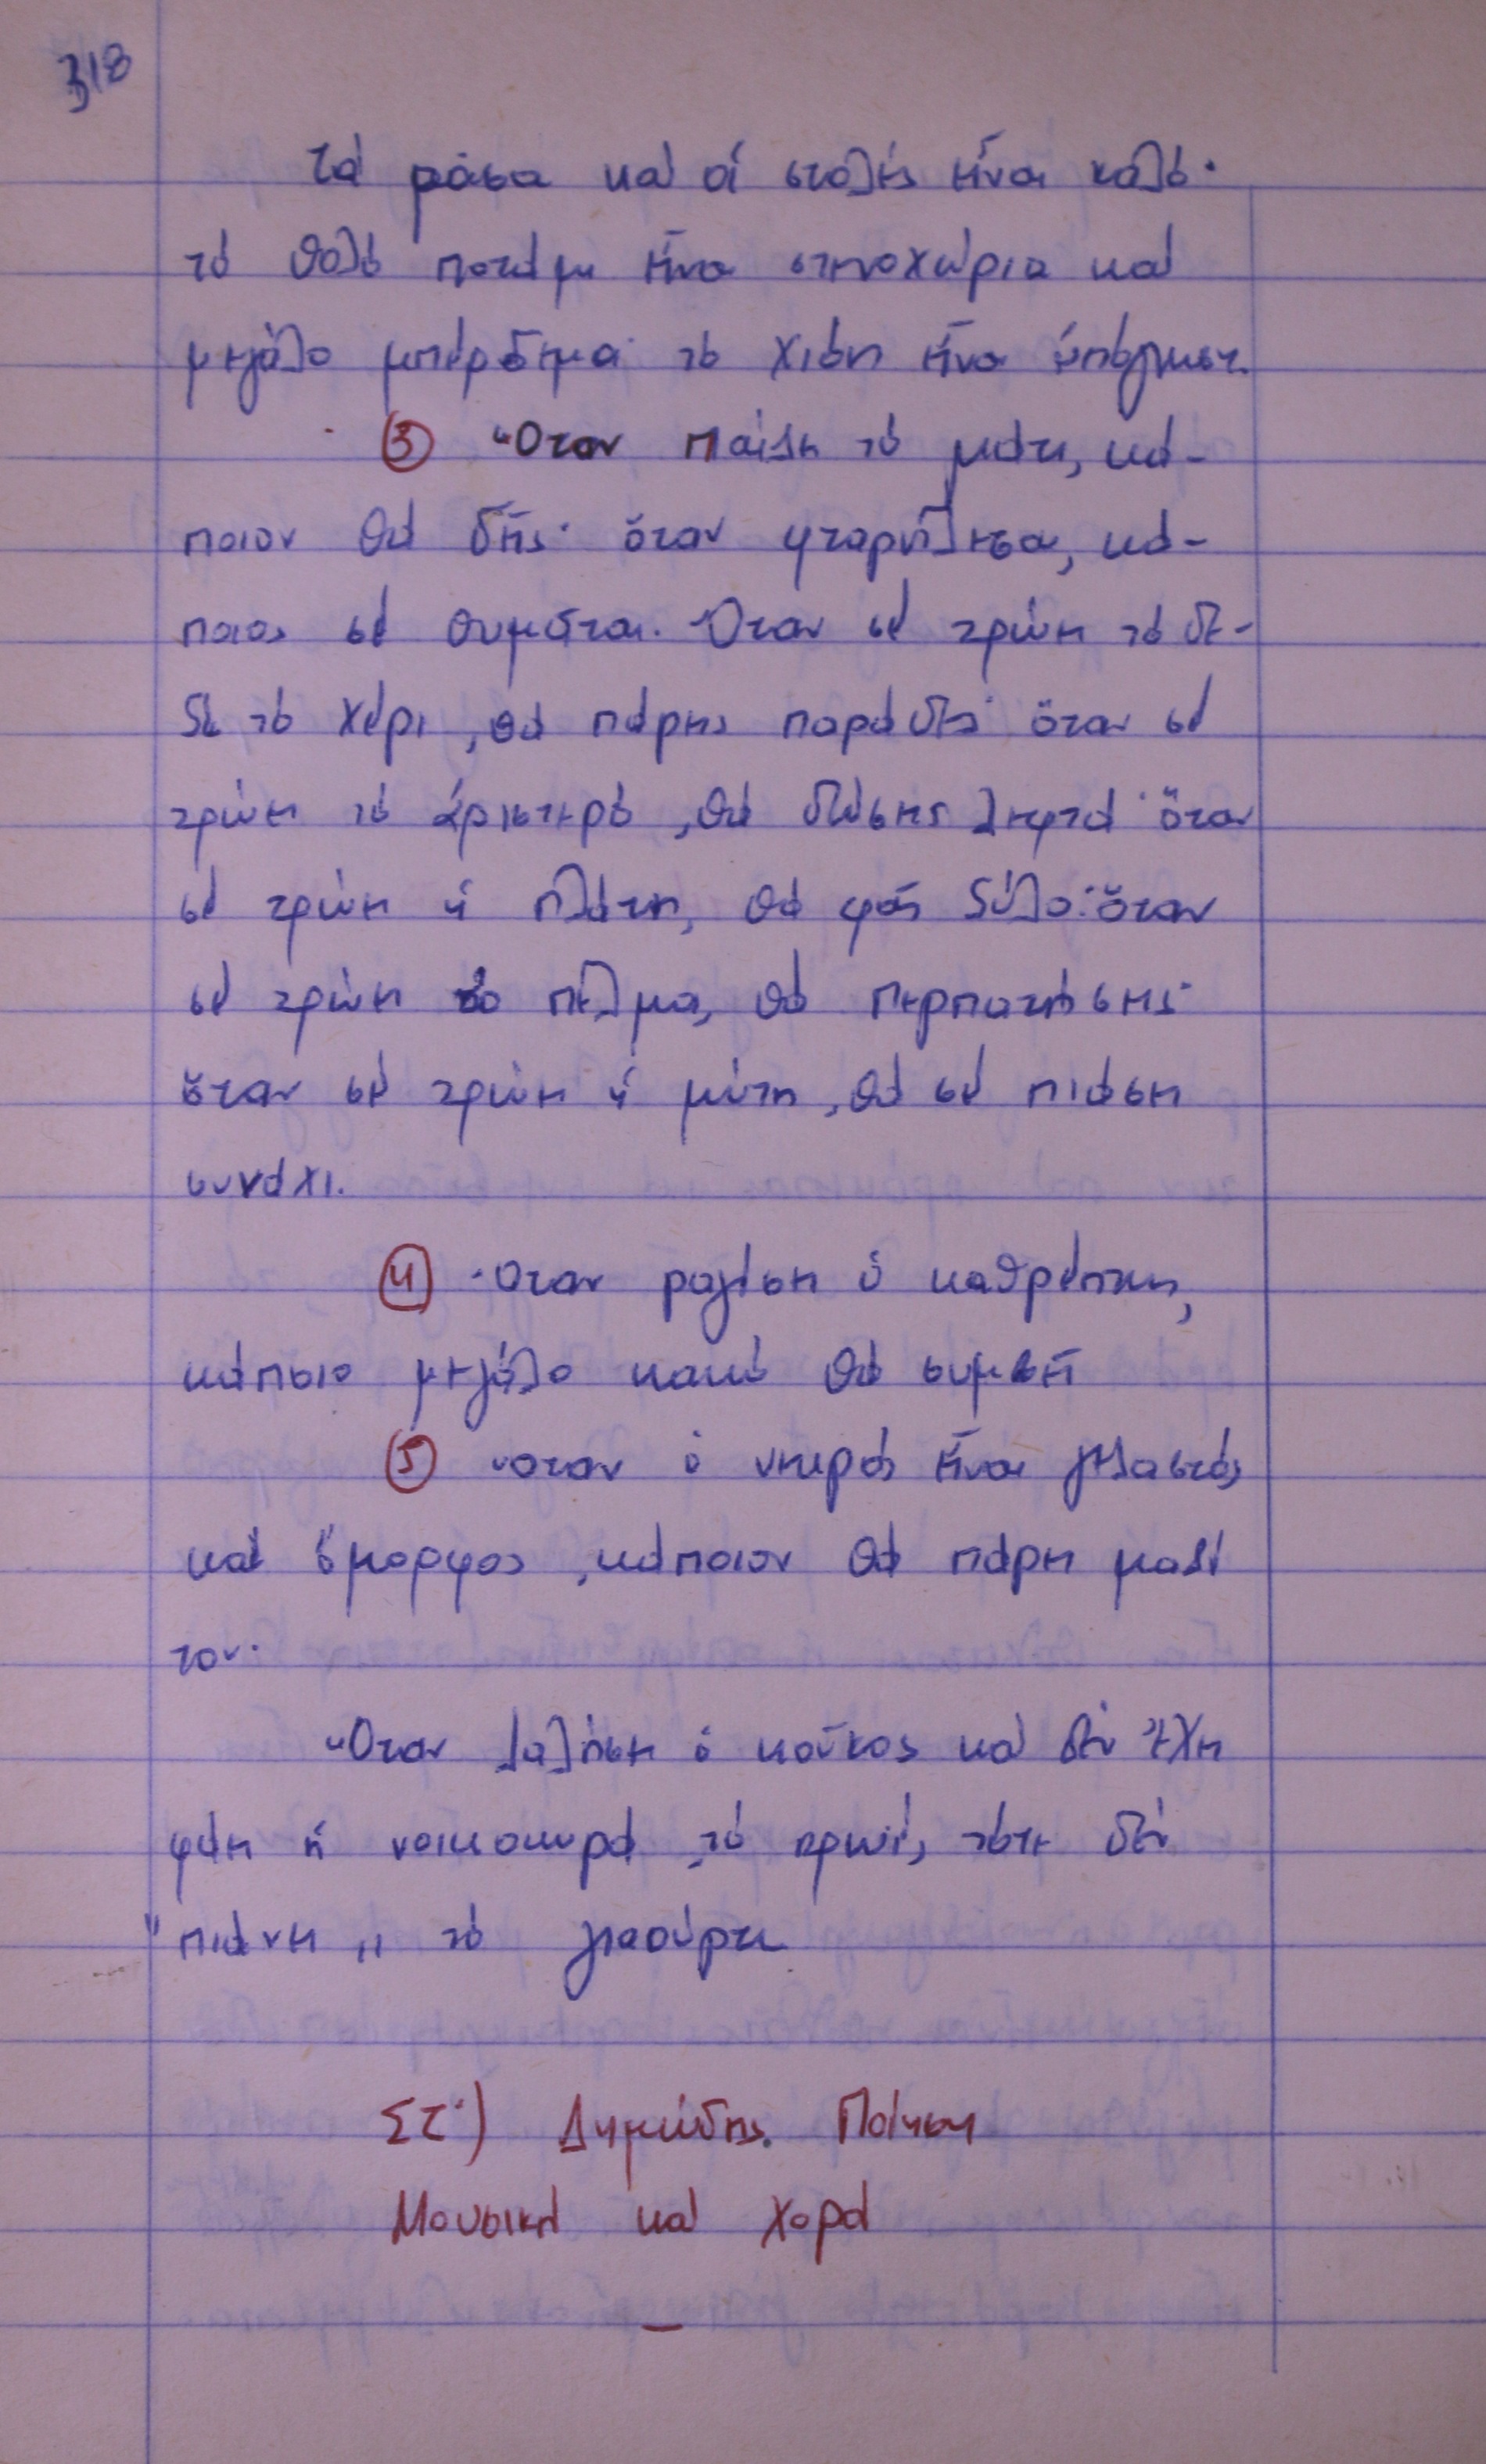 318
Τά ράσα καί οἱ στολές εἶναι καλό·
τό θολό ποτάμι εἶναι στενοχώρια καί
μεγάλο μπέρδεμα· τό χιόνι εἶναι
③ Ὅταν παίζη τό μάτι, κά-
ποιον θά δῆς· ὅταν φταρνίζεσαι, κά-
ποιος σέ θυμᾶται. Ὅταν σέ τρώη τό δε-
ξί τό χέρι, θά πάρης παράδες· ὅταν σέ
τρώη τό ἀριστερό, θά δώσης λεφτά· ὅταν
σέ τρώη ἡ πλάτη, θά φᾶς ξύλο· ὅταν
σέ τρώη τό πέλμα, θά περπατήσης·
ὅταν σέ τρώη ἡ μύτη, θά σέ πιάση
συνάχι.
④ Ὅταν ραγίση ὁ καθρέπτης,
κάποιο μεγάλο κακό θά συμβῆ
⑤ Ὅταν ὁ νεκρός εἶναι γελαστός
καί ὄμορφος, κάποιον θά πάρη μαζί
του.
Ὅταν λαλήση ὁ κοῦκος καί δέν ἔχη
φάη ἡ νοικοκυρά, τό πρωί, τότε δέν
"πιάνη" τό γιαούρτι.
ΣΤ') Δημώδης Ποίηση
Μουσική καί χορό
—